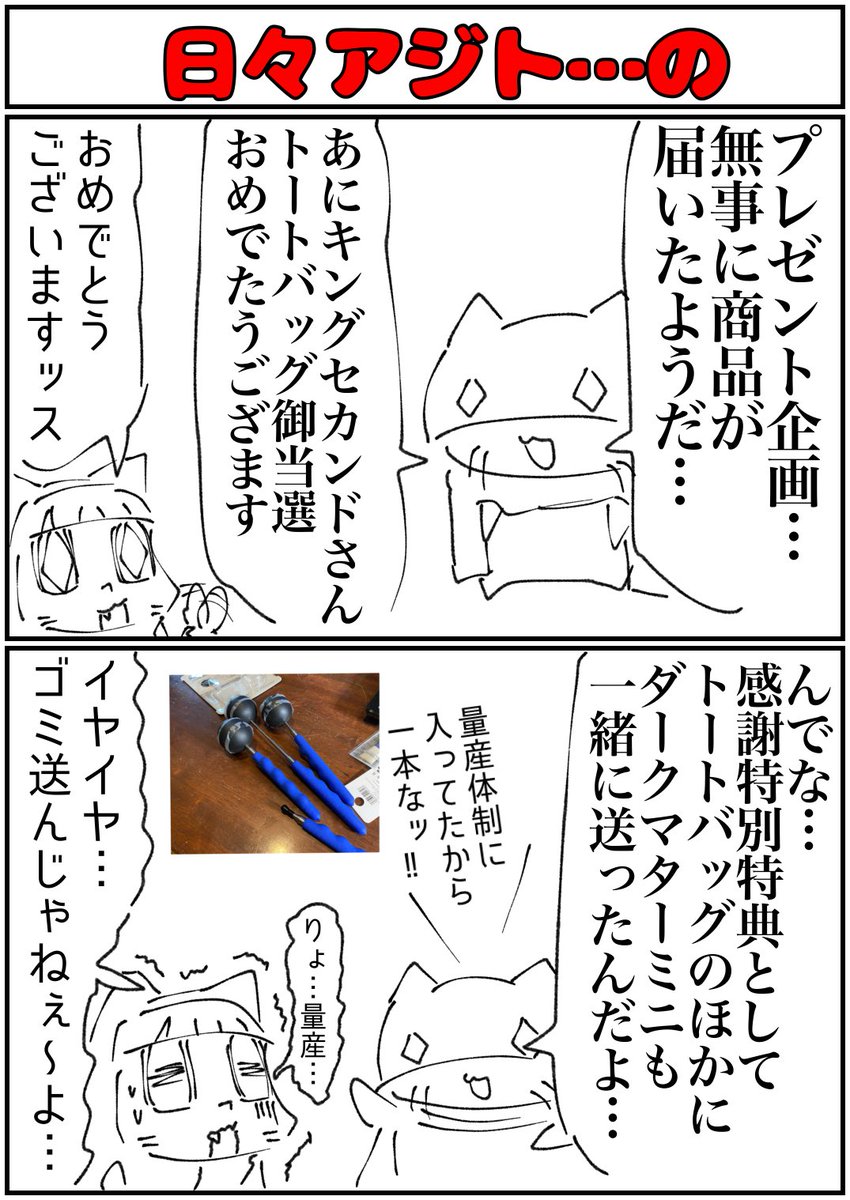 日々アジト…の
プレゼント企画…
無事に商品が
届いたようだ…
あにキングセカンドさん
トートバッグ御当選
おめでたうござます
おめでとう
ございますッス
んでな…
感謝特別特典として
トートバッグのほかに
ダークマターミニも
一緒に送ったんだよ…
量産体制に
入ってたから
一本なッ!!
りょ…量産…
イヤイヤ…
ゴミ送んじゃねぇ～よ…